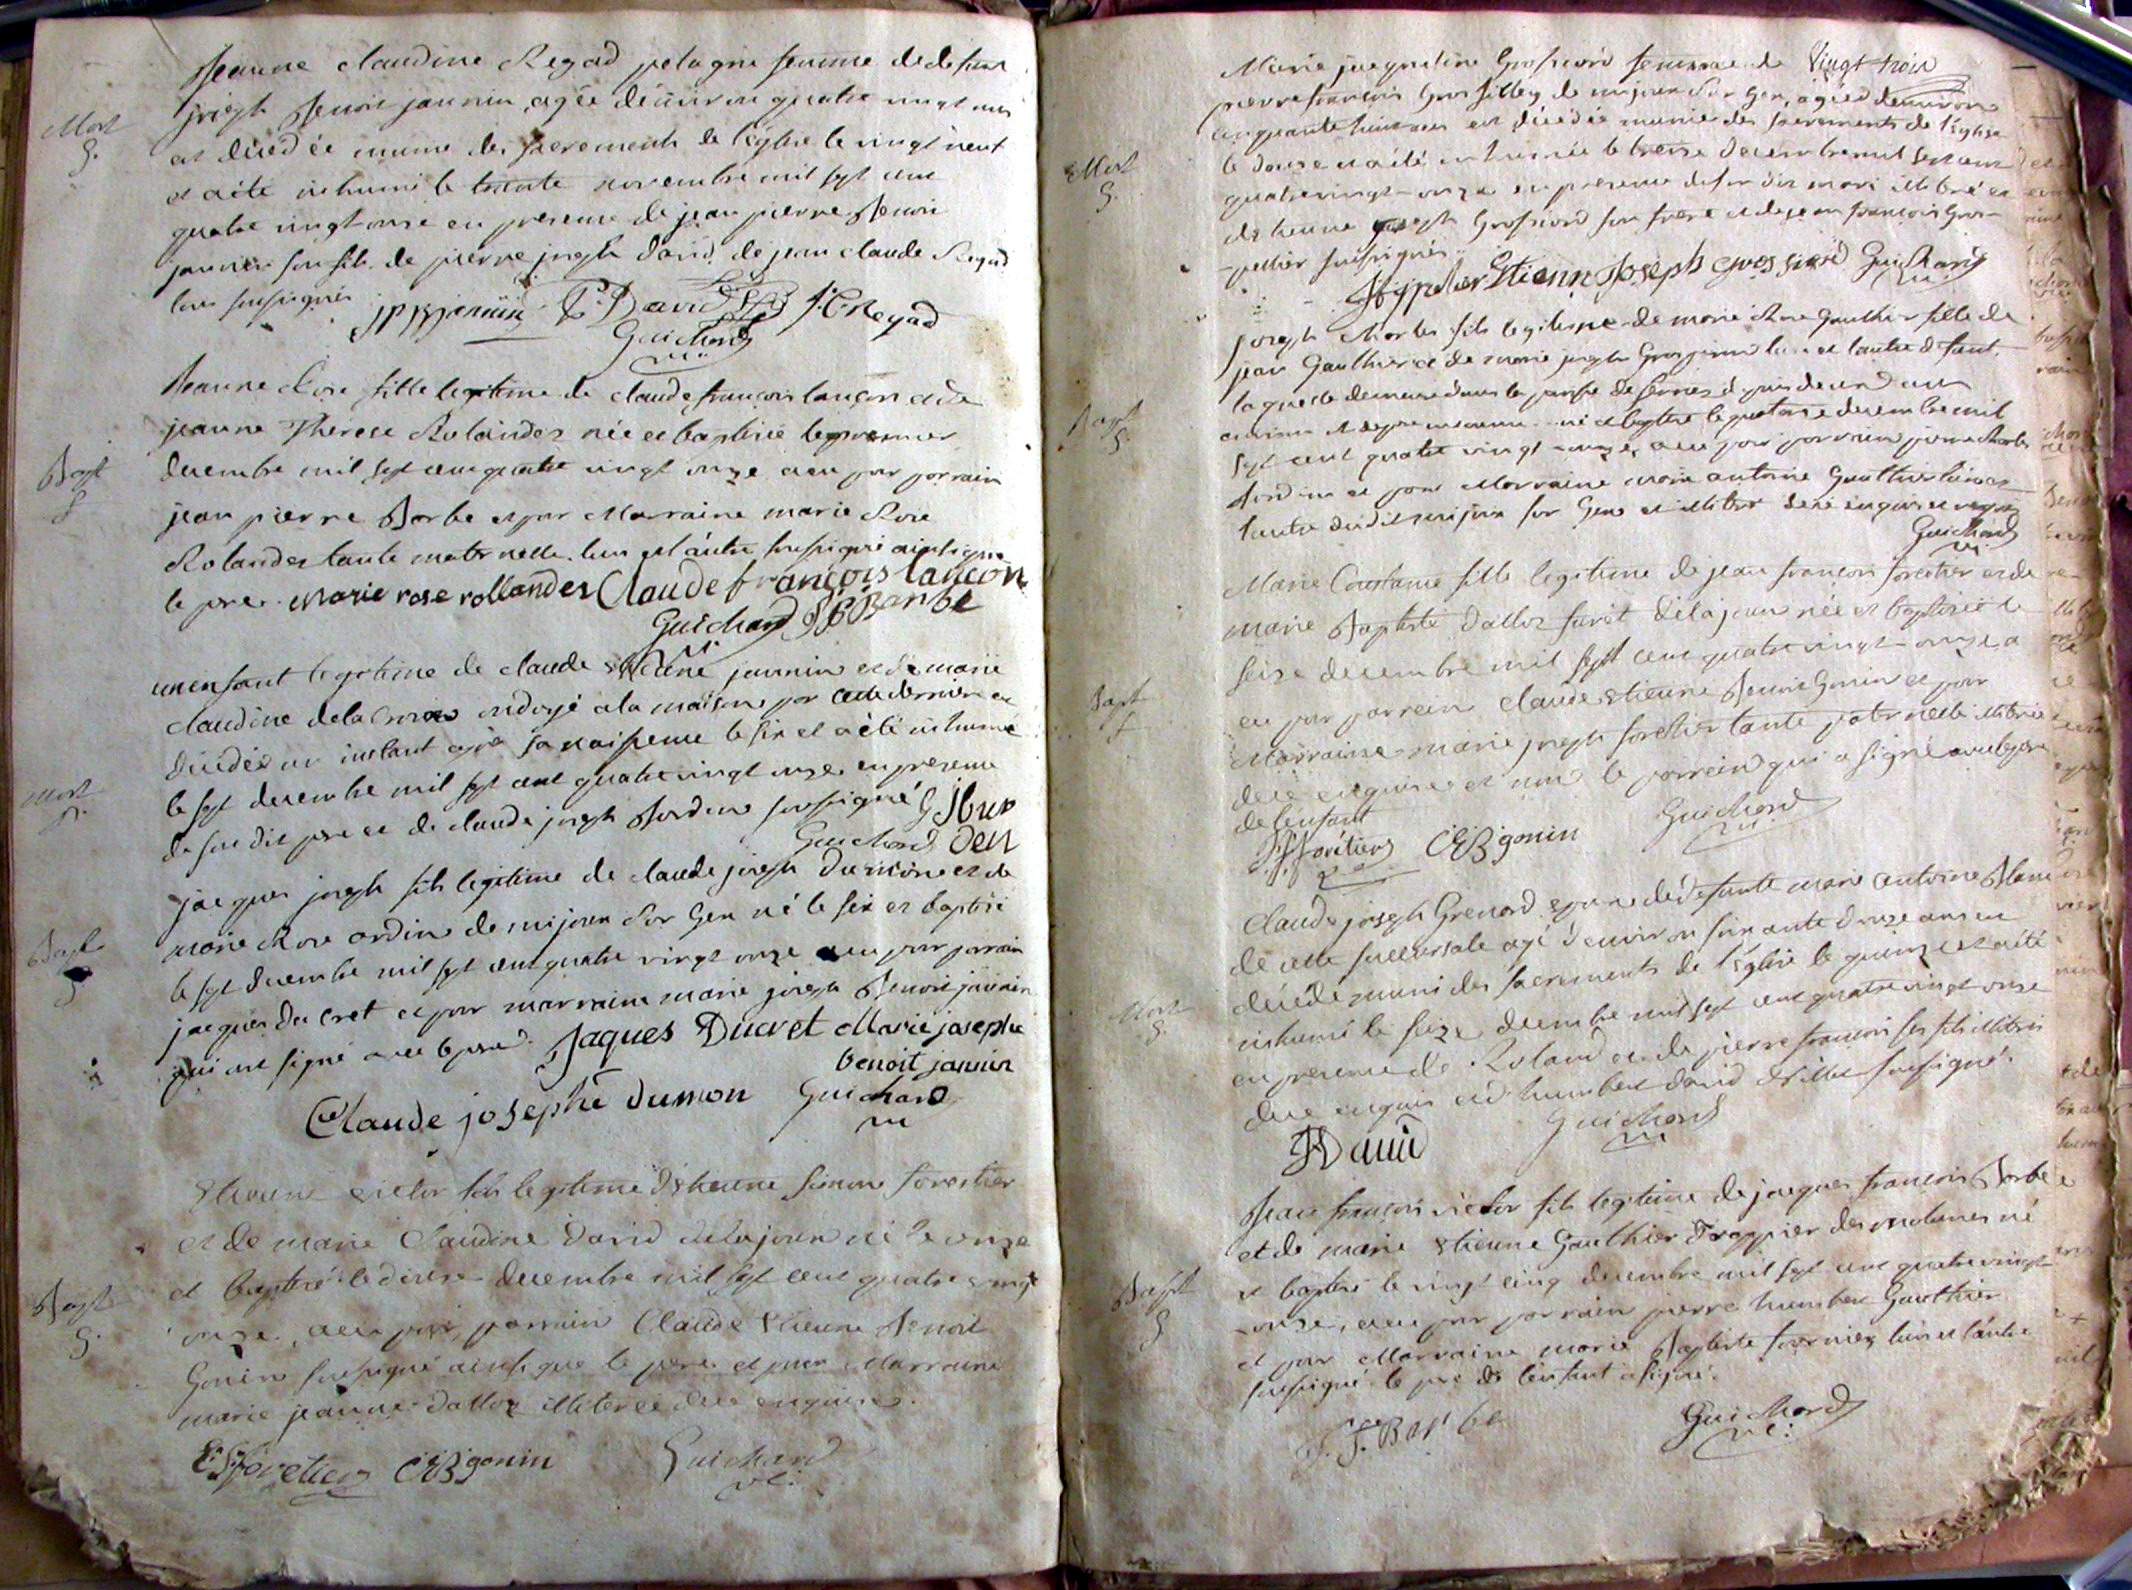 Jeanne claudine Regad pelagri femme de defunt
joseph Benoit jannin, agée d'environ quatre vingt ans
Mort
est décédée munie des sacrements de l'église le vingt neuf
S.
et a été inhumé le trente novembre mil sept cent
quatre vingt onze en presence de jean pierre Benoit
jannin son fils, de pierre joseph david, de jean claude Regad
tous soussignés
JPBjannin P. J. David J. C. Regad
Guichard
Jeanne Rose fille legitime de claude françois lançon et de
jeanne Therese Rolandez née et baptisée le premier
Bapt
decembre mil sept cent quatre vingt onze a eu pour parrain
S
jean pierre Barbe et pour Marraine marie Rose
Rolandez tante maternelle. l'un et l'autre soussigné ainsi que
le pere. Marie rose rollandez Claude françois lançon
Guichard J P Barbe
un enfant legitime de claude Etienne jannin et de marie
claudine delacroix ondoyé a la maison par cette derniere et
décédé un instant après sa naissance le six et a été inhumé
Mort
le sept decembre mil sept cent quatre vingt onze en presence
S.
du susdit pere et de claude joseph Bordin soussigné
Guichard
jacques joseph fils legitime de claude joseph Dumon et de
marie Rose ordin de mijoux Sur Gex né le six et baptisé
Bapt
le sept decembre mil sept cent quatre vingt onze a eu pour parrain
S
jacques du cret et pour marraine marie joseph Benoit jannin
qui ont signé avec le pere. Jaques Ducret Marie josephe
benoit jannin
Claude josephe dumon Guichard
Etienne victor fils legitime d'Etienne Simon forestier
et de marie Claudine David de lajoux né le onze
et baptisé le douze decembre mil sept cent quatre vingt
Bapt
onze, a eu pour parrain Claude Etienne Benoit
S.
Gonin soussigné ainsi que le pere et pour Marraine
marie jeanne dalloz illiterée de ce enquise.
E. S. foretier CEBgonin Guichard
Vingt trois
Marie jacqueline Grossiord femme de
pierre françois Gros fillex de mijoux Sur Gex, agée d'environ
cinquante huit ans est décédée munie des sacrements de l'église
Mort
le douze et a été inhumée le treize decembre mil sept cent
S.
quatre vingt onze en presence de son dit mari illiteré et
d'Etienne joseph Grossiord son frère et de jean françois Gros-
-pellier soussignés
Etienn Joseph grossiord Guichard
joseph Charles fils legitime de marie Rose Gauthier fille de
jean Gauthier et de marie joseph Grospierre l'un et l'autre defunt.
Bapt
S
né et baptisé le quatorze decembre mil
sept cent quatre vingt onze, a eu pour parrain pierre Charles
Bordin et pour Marraine marie antoine Gauthier l'un et
l'autre dudit mijoux sur Gex et illiteré de ce enquis et requis
Guichard
Marie Constance fille legitime de jean françois forestier et de
marie Baptiste dalloz furet de lajoux née et baptisée le
Seize decembre mil sept cent quatre vingt onze, a
Bapt
eu pour parrein claude Etienne Benoit Gonin et pour
S
Marraine marie joseph forestier tante paternelle illiterée
de ce enquise et non le parrein qui a signé avec le pere
de l'enfant
J. f. forétiers CEBgonin Guichard
Claude joseph Grenard epoux de defunte marie antoine Blanc
de cette succursale agé d'environ soixante douze ans est
décédé muni des sacrements de l'église le quinze et a été
Mort
inhumé le seize decembre mil sept cent quatre vingt onze
S.
en presence de Roland et de pierre françois ses fils illiterés
de ce enquis et d'humbert david soussigné.
HDavid Guichard
Jean françois victor fils legitime de jacques françois Barbe
et de marie Etienne Gauthier Frappier des molunes né
Bapt
et baptisé le vingt cinq decembre mil sept cent quatre vingt
S
onze, a eu pour parrain pierre humbert Gauthier
et pour Marraine marie Baptiste fournier, l'un et l'autre
soussigné le pere de l'enfant a signé.
J. F. Barbe Guichard